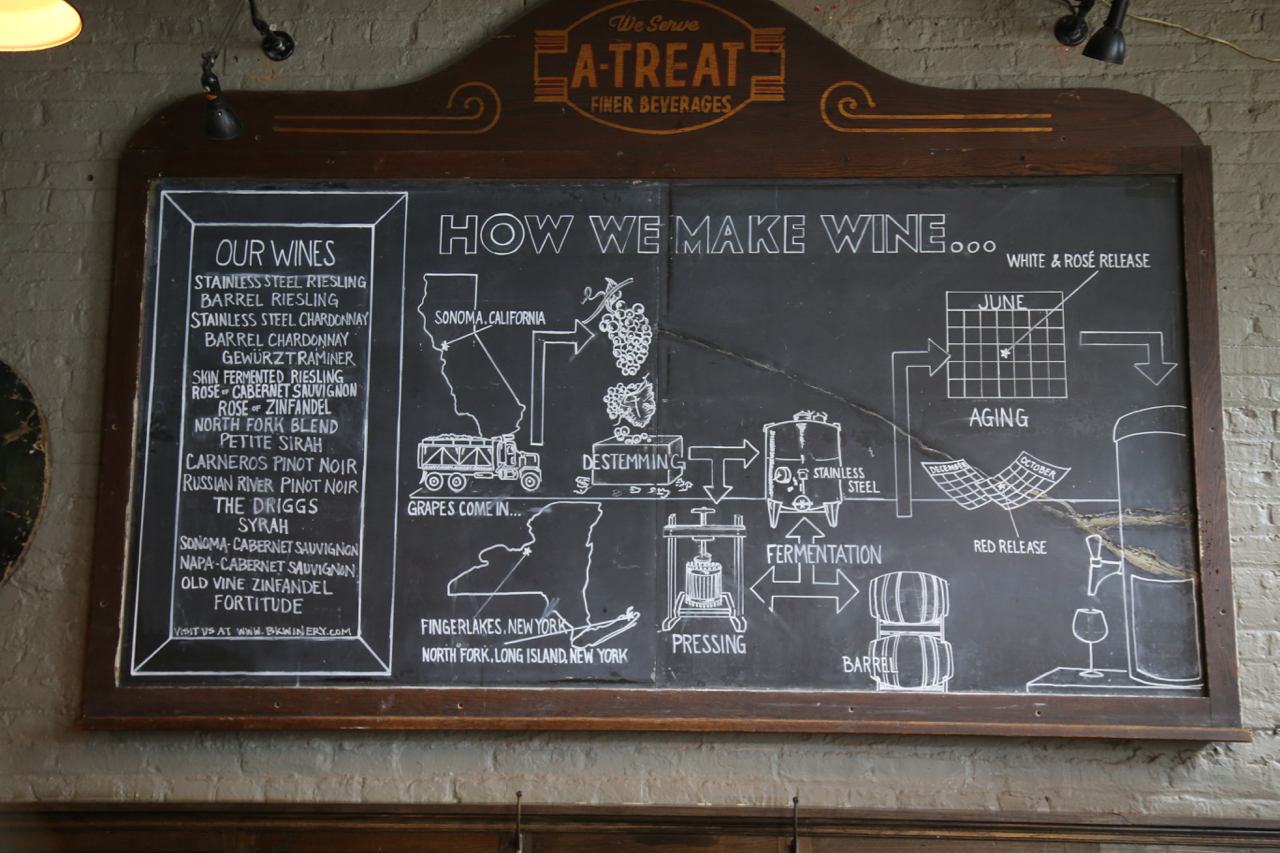 We Serve
A-TREAT
FINER BEVERAGES
OUR WINES
STAINLESS STEEL RIESLING
BARREL RIESLING
STAINLESS STEEL CHARDONNAY
BARREL CHARDONNAY
GEWÜRZTRAMINER
SKIN FERMENTED RIESLING
ROSE OF CABERNET SAUVIGNON
ROSE OF ZINFANDEL
NORTH FORK BLEND
PETITE SIRAH
CARNEROS PINOT NOIR
RUSSIAN RIVER PINOT NOIR
THE DRIGGS
SYRAH
SONOMA-CABERNET SAUVIGNON
NAPA-CABERNET SAUVIGNON
OLD VINE ZINFANDEL
FORTITUDE
VISIT US AT WWW.BKWINERY.COM
HOW WE MAKE WINE...
SONOMA, CALIFORNIA
GRAPES COME IN...
FINGERLAKES, NEW YORK
NORTH FORK, LONG ISLAND, NEW YORK
DESTEMMING
PRESSING
STAINLESS
STEEL
FERMENTATION
BARREL
WHITE & ROSÉ RELEASE
JUNE
AGING
DECEMBER
OCTOBER
RED RELEASE